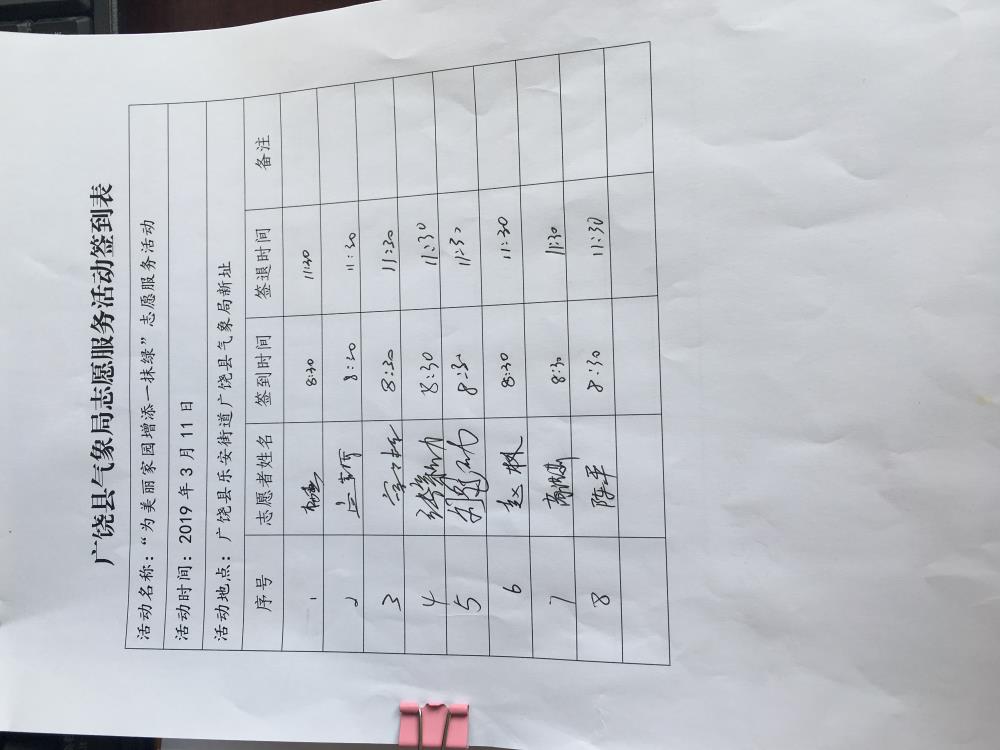 广饶县气象局志愿服务活动签到表
活动名称：“为美丽家园增添一抹绿”志愿服务活动
活动时间：2019 年 3 月 11 日
活动地点：广饶县乐安街道广饶县气象局新址
序号 志愿者姓名 签到时间 签退时间 备注
1 8:30 11:30
2 8:30 11:30
3 8:30 11:30
4 8:30 11:30
5 8:30 11:30
6 赵枫 8:30 11:30
7 8:30 11:30
8 陈平 8:30 11:30